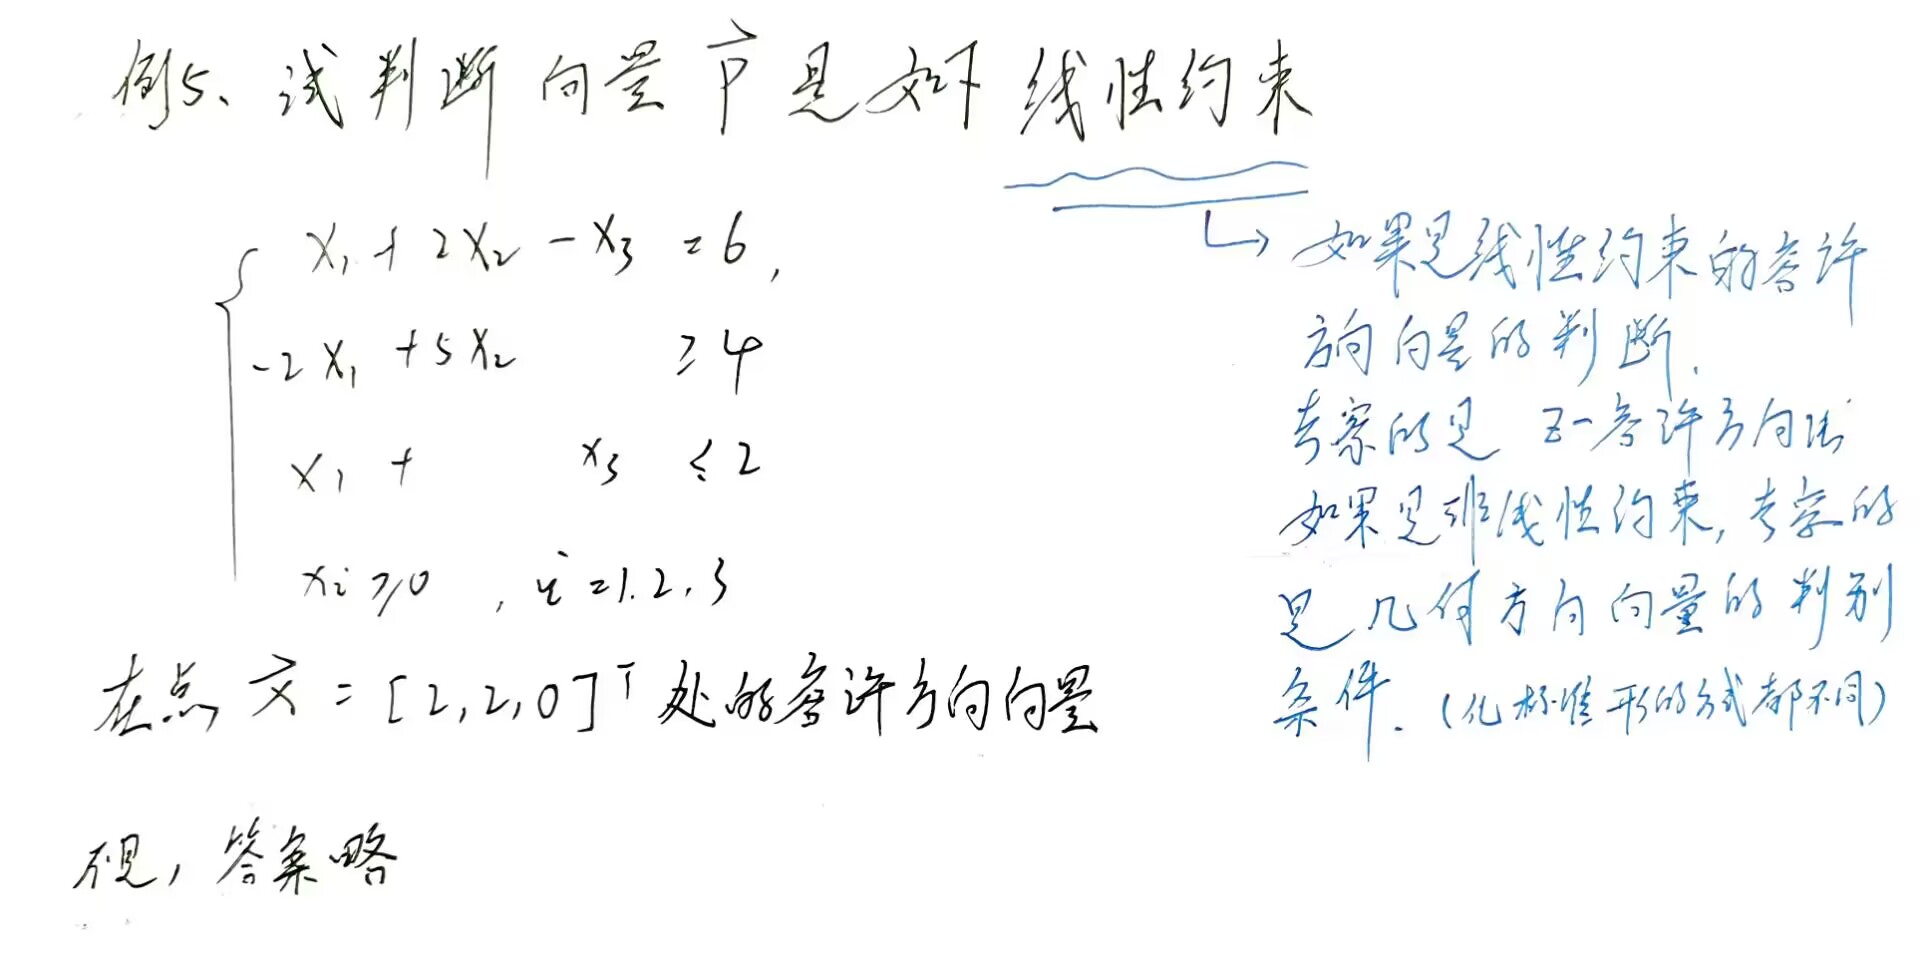 例5、试判断向量 p⃗ 是如下线性约束
x₁ + 2x₂ - x₃ = 6,
-2x₁ + 5x₂ ≥ 4
x₁ + x₃ ≤ 2
xᵢ ≥ 0 , i = 1.2.3
在点 x⃗ = [2,2,0]ᵀ 处的容许方向向量
→ 如果是线性约束的容许
方向向量的判断.
考察的是 Z-容许方向法
如果是非线性约束, 考察的
是几何方向向量的判别
条件. (化标准形的方式都不同)
答案略